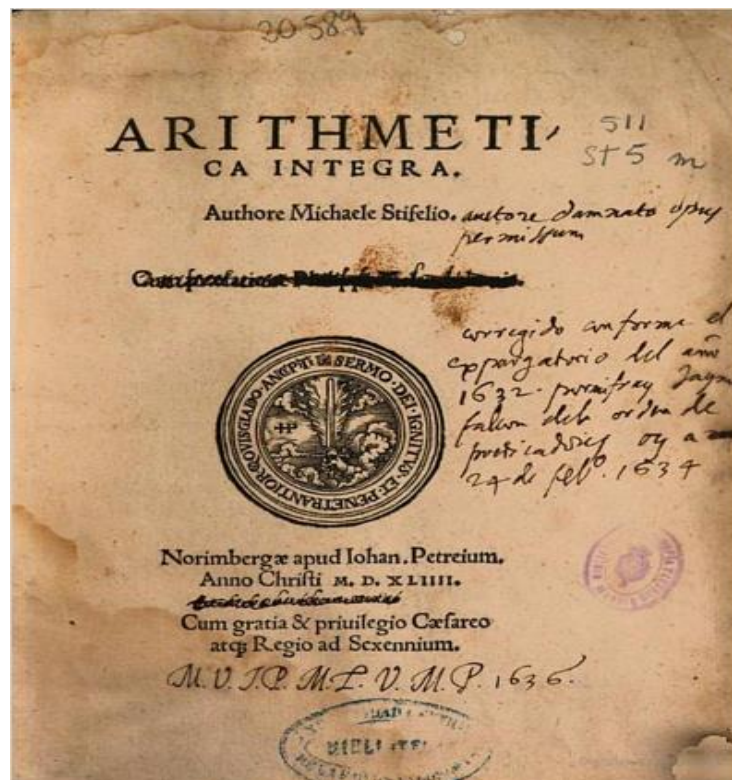 30589
ARITHMETI,
CA INTEGRA.
511
St5 m
Authore Michaele Stifelio. auctore damnato opus
permissum
corregido conforme el
expurgatorio del año
1632. por mi fray
falcon del orden de
predicadores oy a
24 de feb.º 1634
SERMO DEI IGNITVS ET PENETRANTIOR QVOVIS GLADIO ANCIPITI
Norimbergæ apud Iohan. Petreium.
Anno Christi M. D. XLIIII.
Cum gratia & priuilegio Cæsareo
atq; Regio ad Sexennium.
M. V. J. P. M. L. V. M. P. 1636.